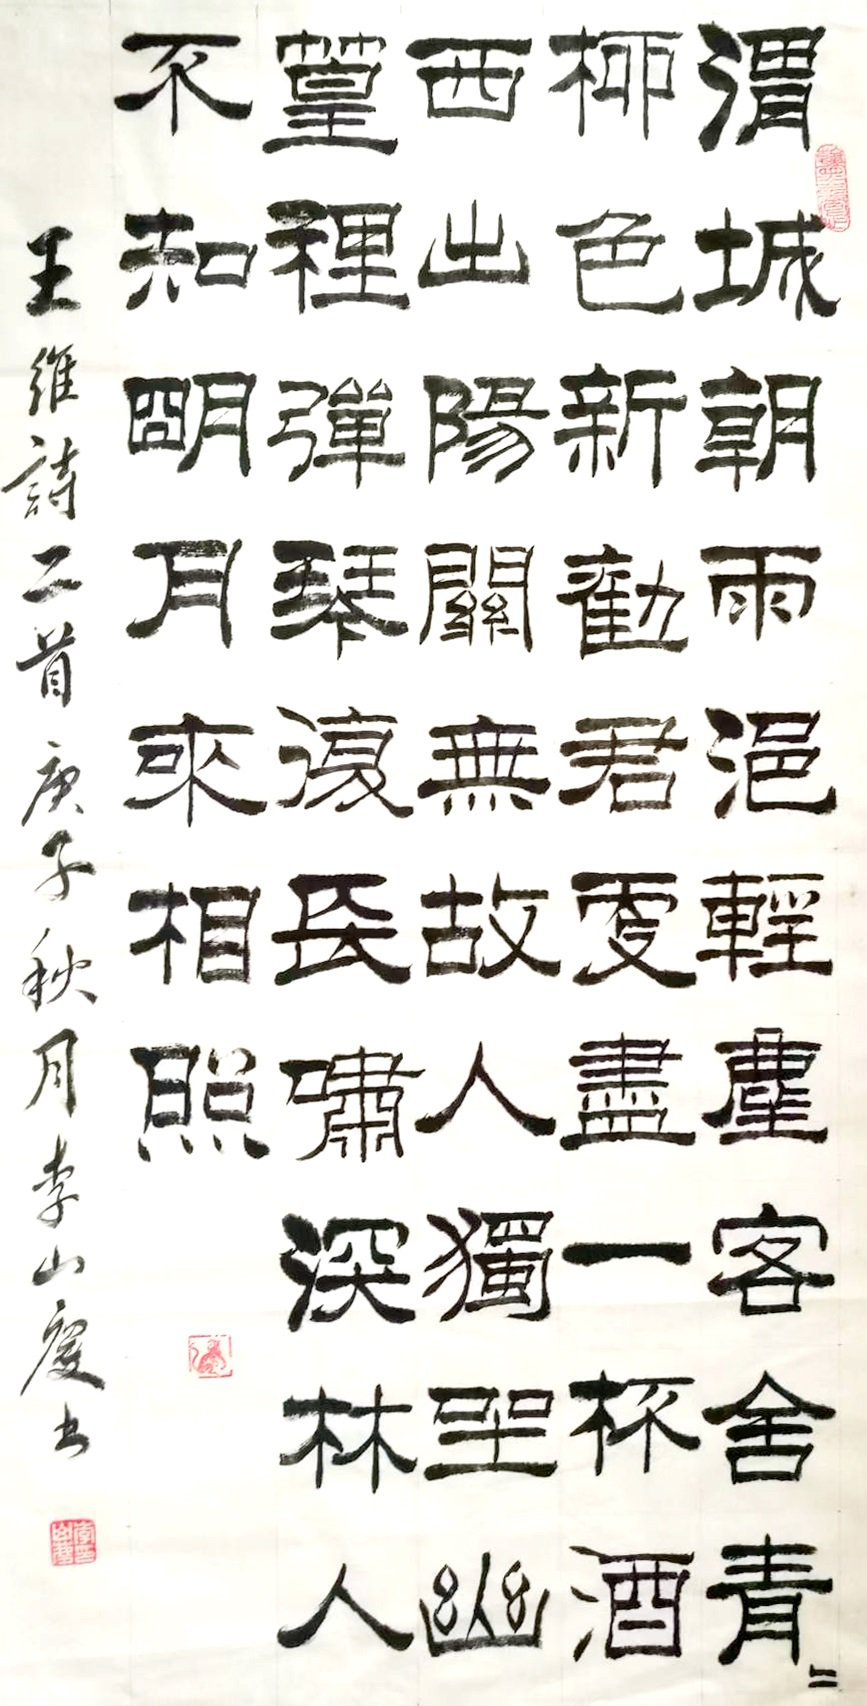 渭城朝雨浥輕塵客舍青二
柳色新勸君更盡一杯酒
西出陽關無故人獨坐幽
篁裡彈琴復長嘯深林人
不知明月來相照
王維詩二首庚子秋月李山慶书